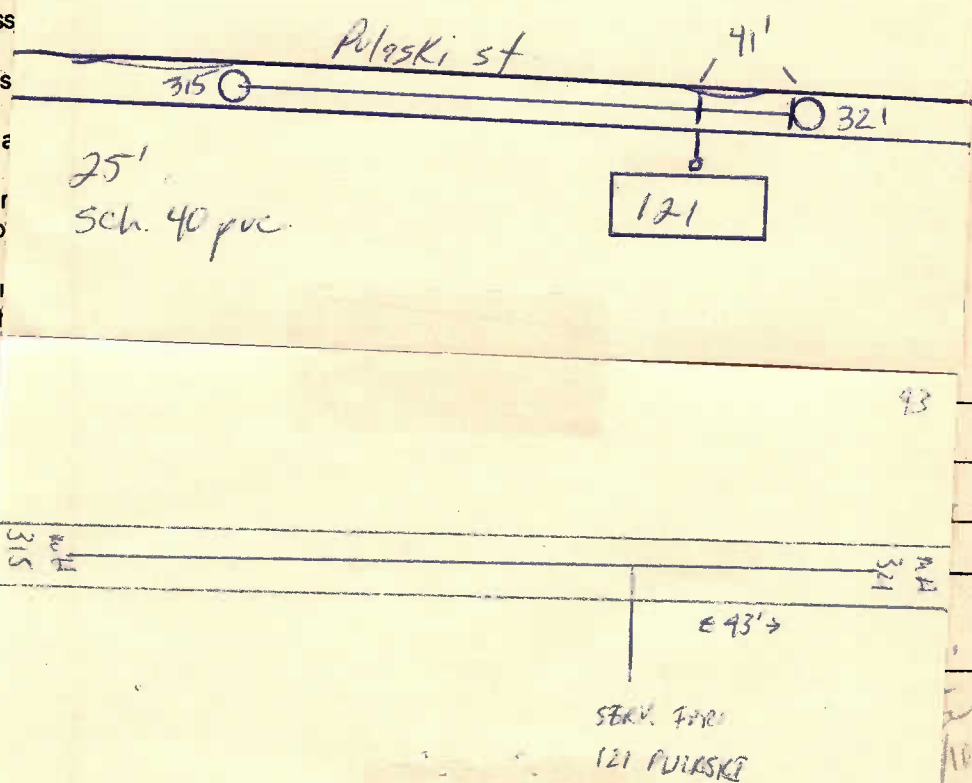 Pulaski st
41'
315
321
25'
Sch. 40 pvc.
121
43
MH
315
MH
321
€ 43' →
SERV. FOR
121 PULASKI